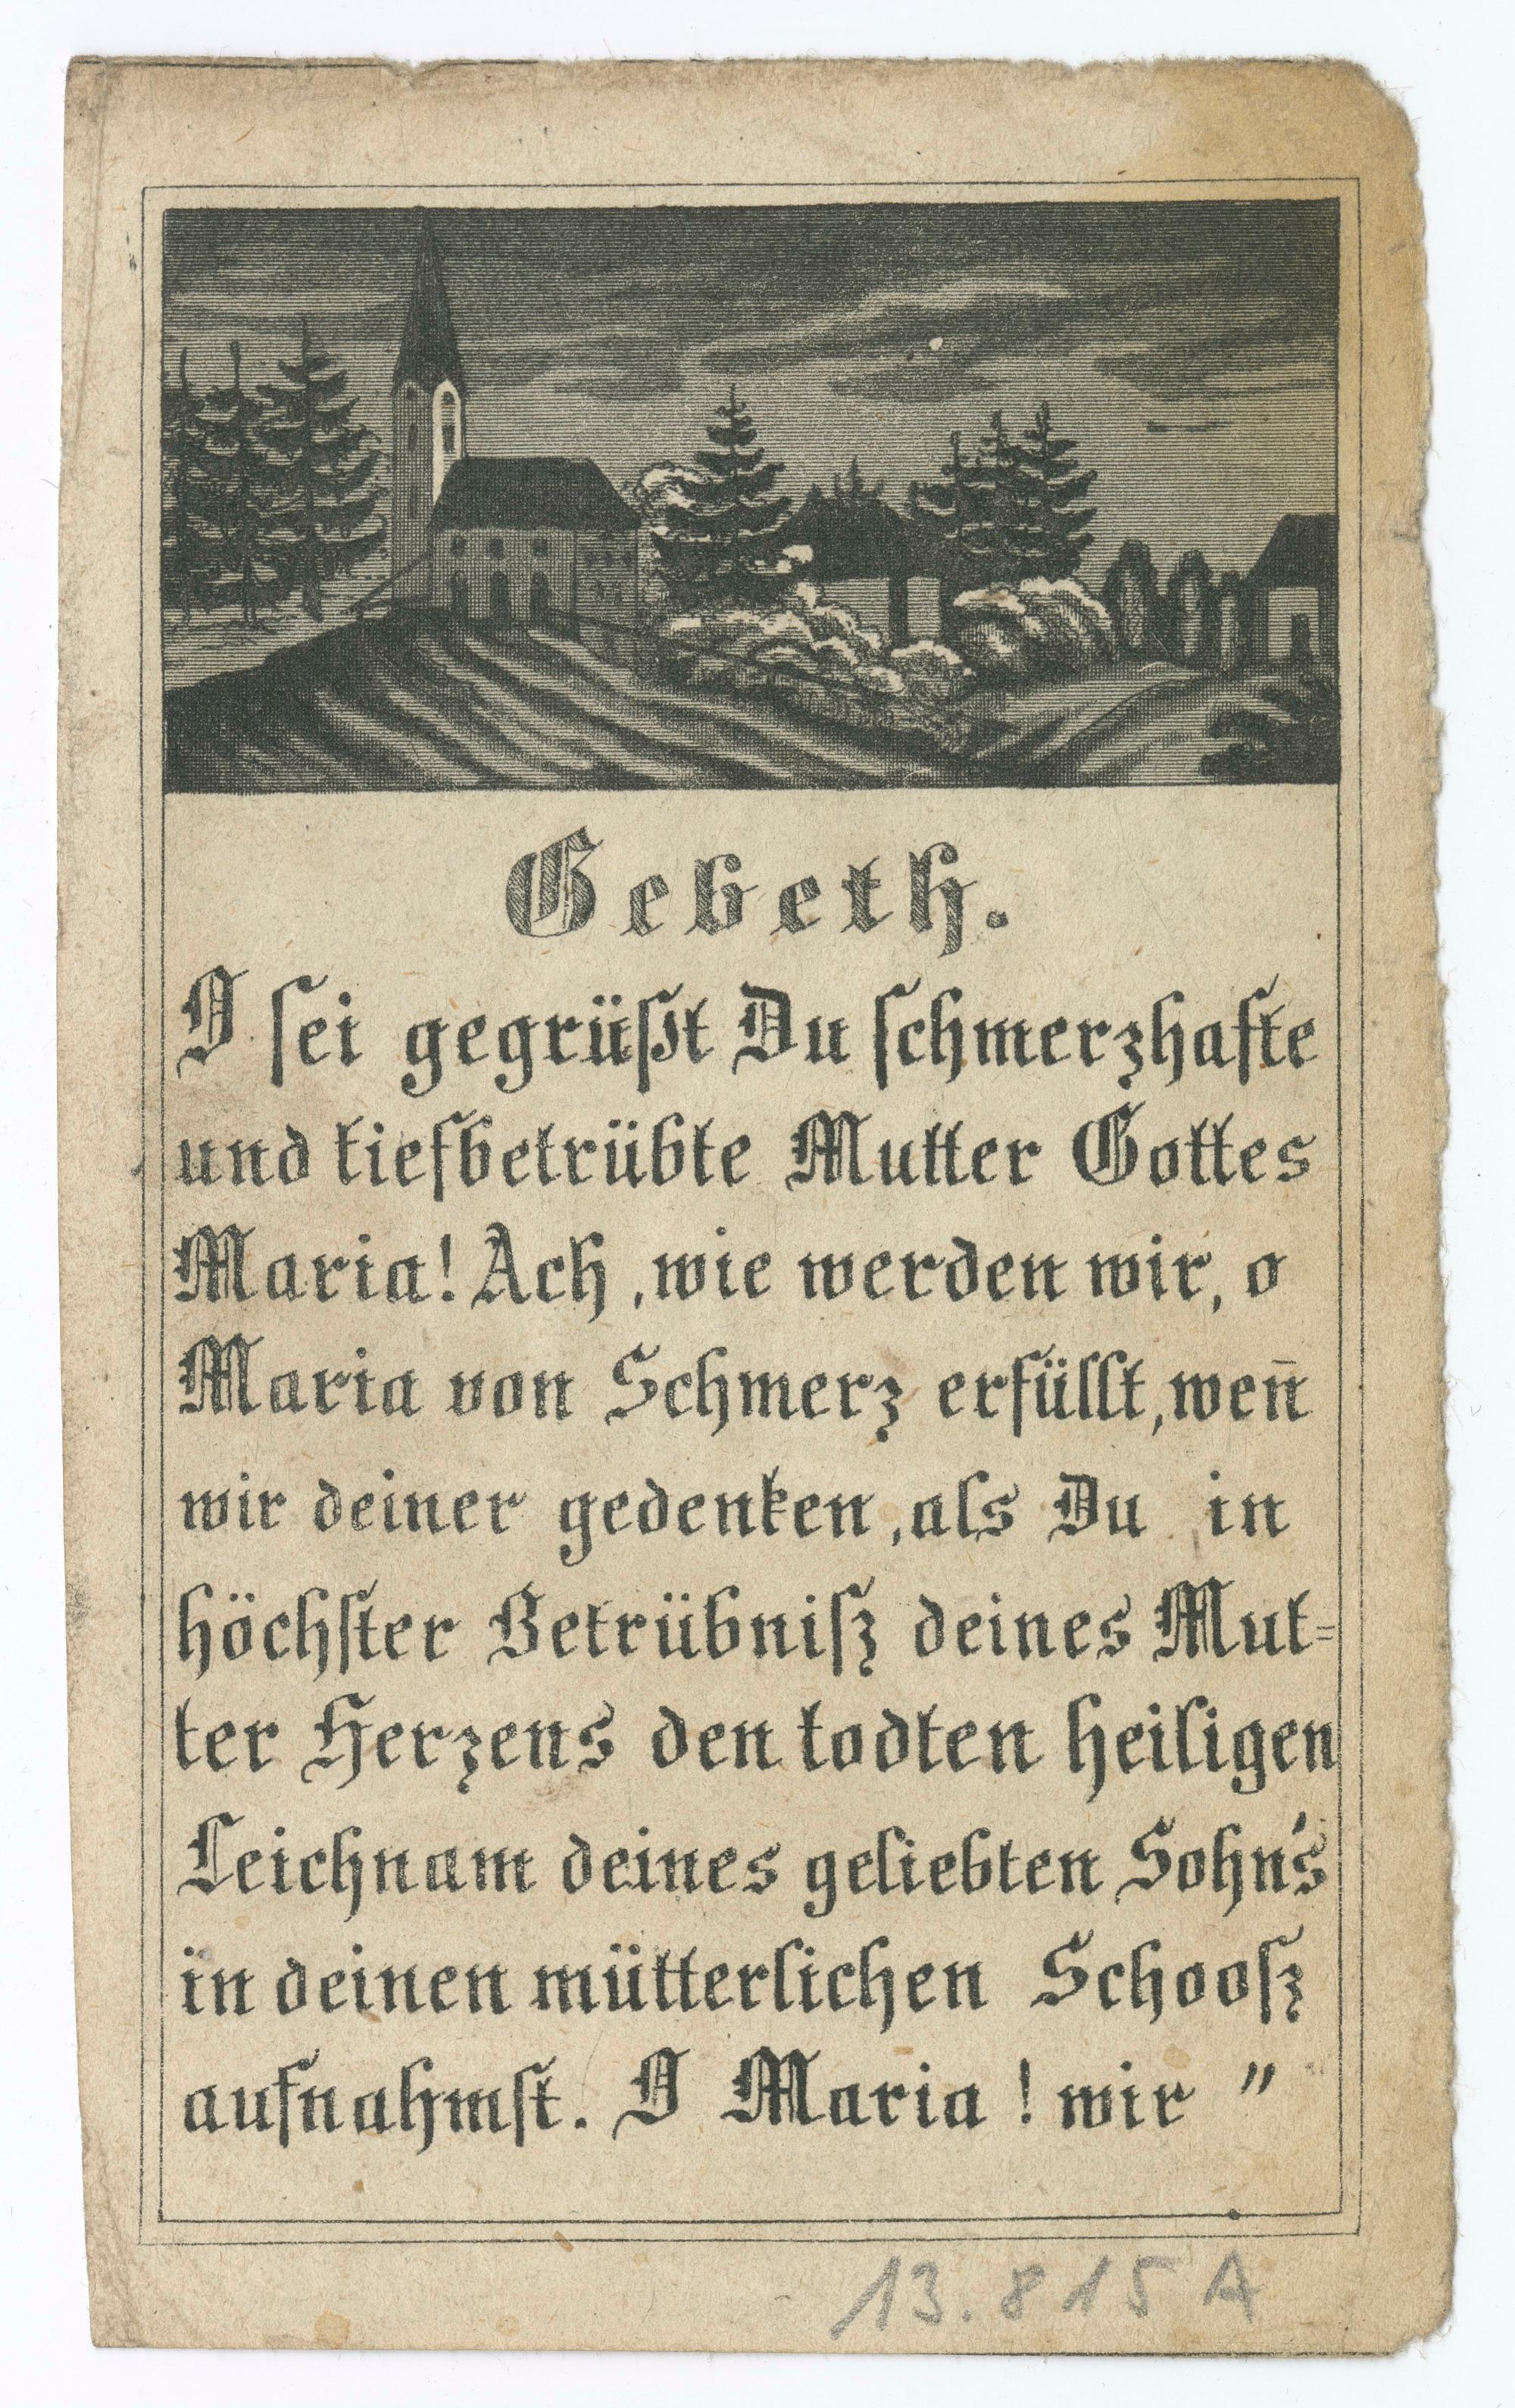 Gebeth.
O sei gegrüßt Du schmerzhafte
und tiefbetrübte Mutter Gottes
Maria! Ach, wie werden wir, o
Maria von Schmerz erfüllt, wen̄
wir deiner gedenken, als Du in
höchster Betrübniß deines Mut=
ter Herzens den todten heiligen
Leichnam deines geliebten Sohn's
in deinen mütterlichen Schooß
aufnahmst. O Maria! wir "
13.815 A